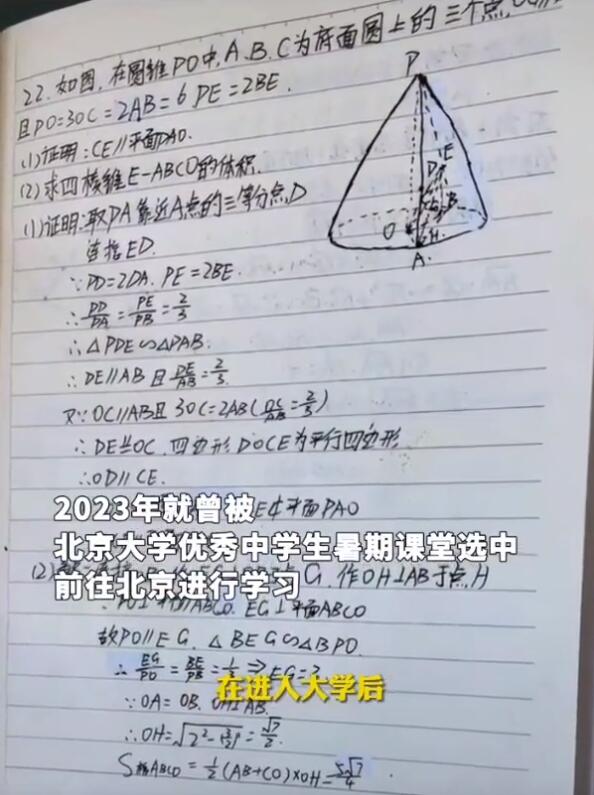 22. 如图, 在圆锥PO中, A.B.C为底面圆上的三个点,
且PO=3OC=2AB=6 PE=2BE.
(1)证明: CE//平面PAO.
(2)求四棱锥E-ABCO的体积.
(1)证明:取PA靠近A点的三等分点D
连接ED.
∵PD=2DA. PE=2BE.
∴PD/DA=PE/PB=2/3
∴△PDE∽△PAB.
∴DE//AB且DE/AB=2/3.
又∵OC//AB且3OC=2AB(OC/AB=2/3)
∴DE⫫OC. 四边形DOCE为平行四边形
∴OD//CE.
E⊄平面PAO
2023年就曾被
北京大学优秀中学生暑期课堂选中
前往北京进行学习
(2) G. 作OH⊥AB于点H
ABCO. EG⊥平面ABCO
故PO//EG. △BEG∽△BPO.
∴EG/PO=BE/PB=1/3⇒EG=2
在进入大学后
∵OA=OB. OH⊥AB.
∴OH= =√7/2.
S梯ABCO=1/2(AB+CO)×OH=5√7/4
P
E
D
B
O
H
A